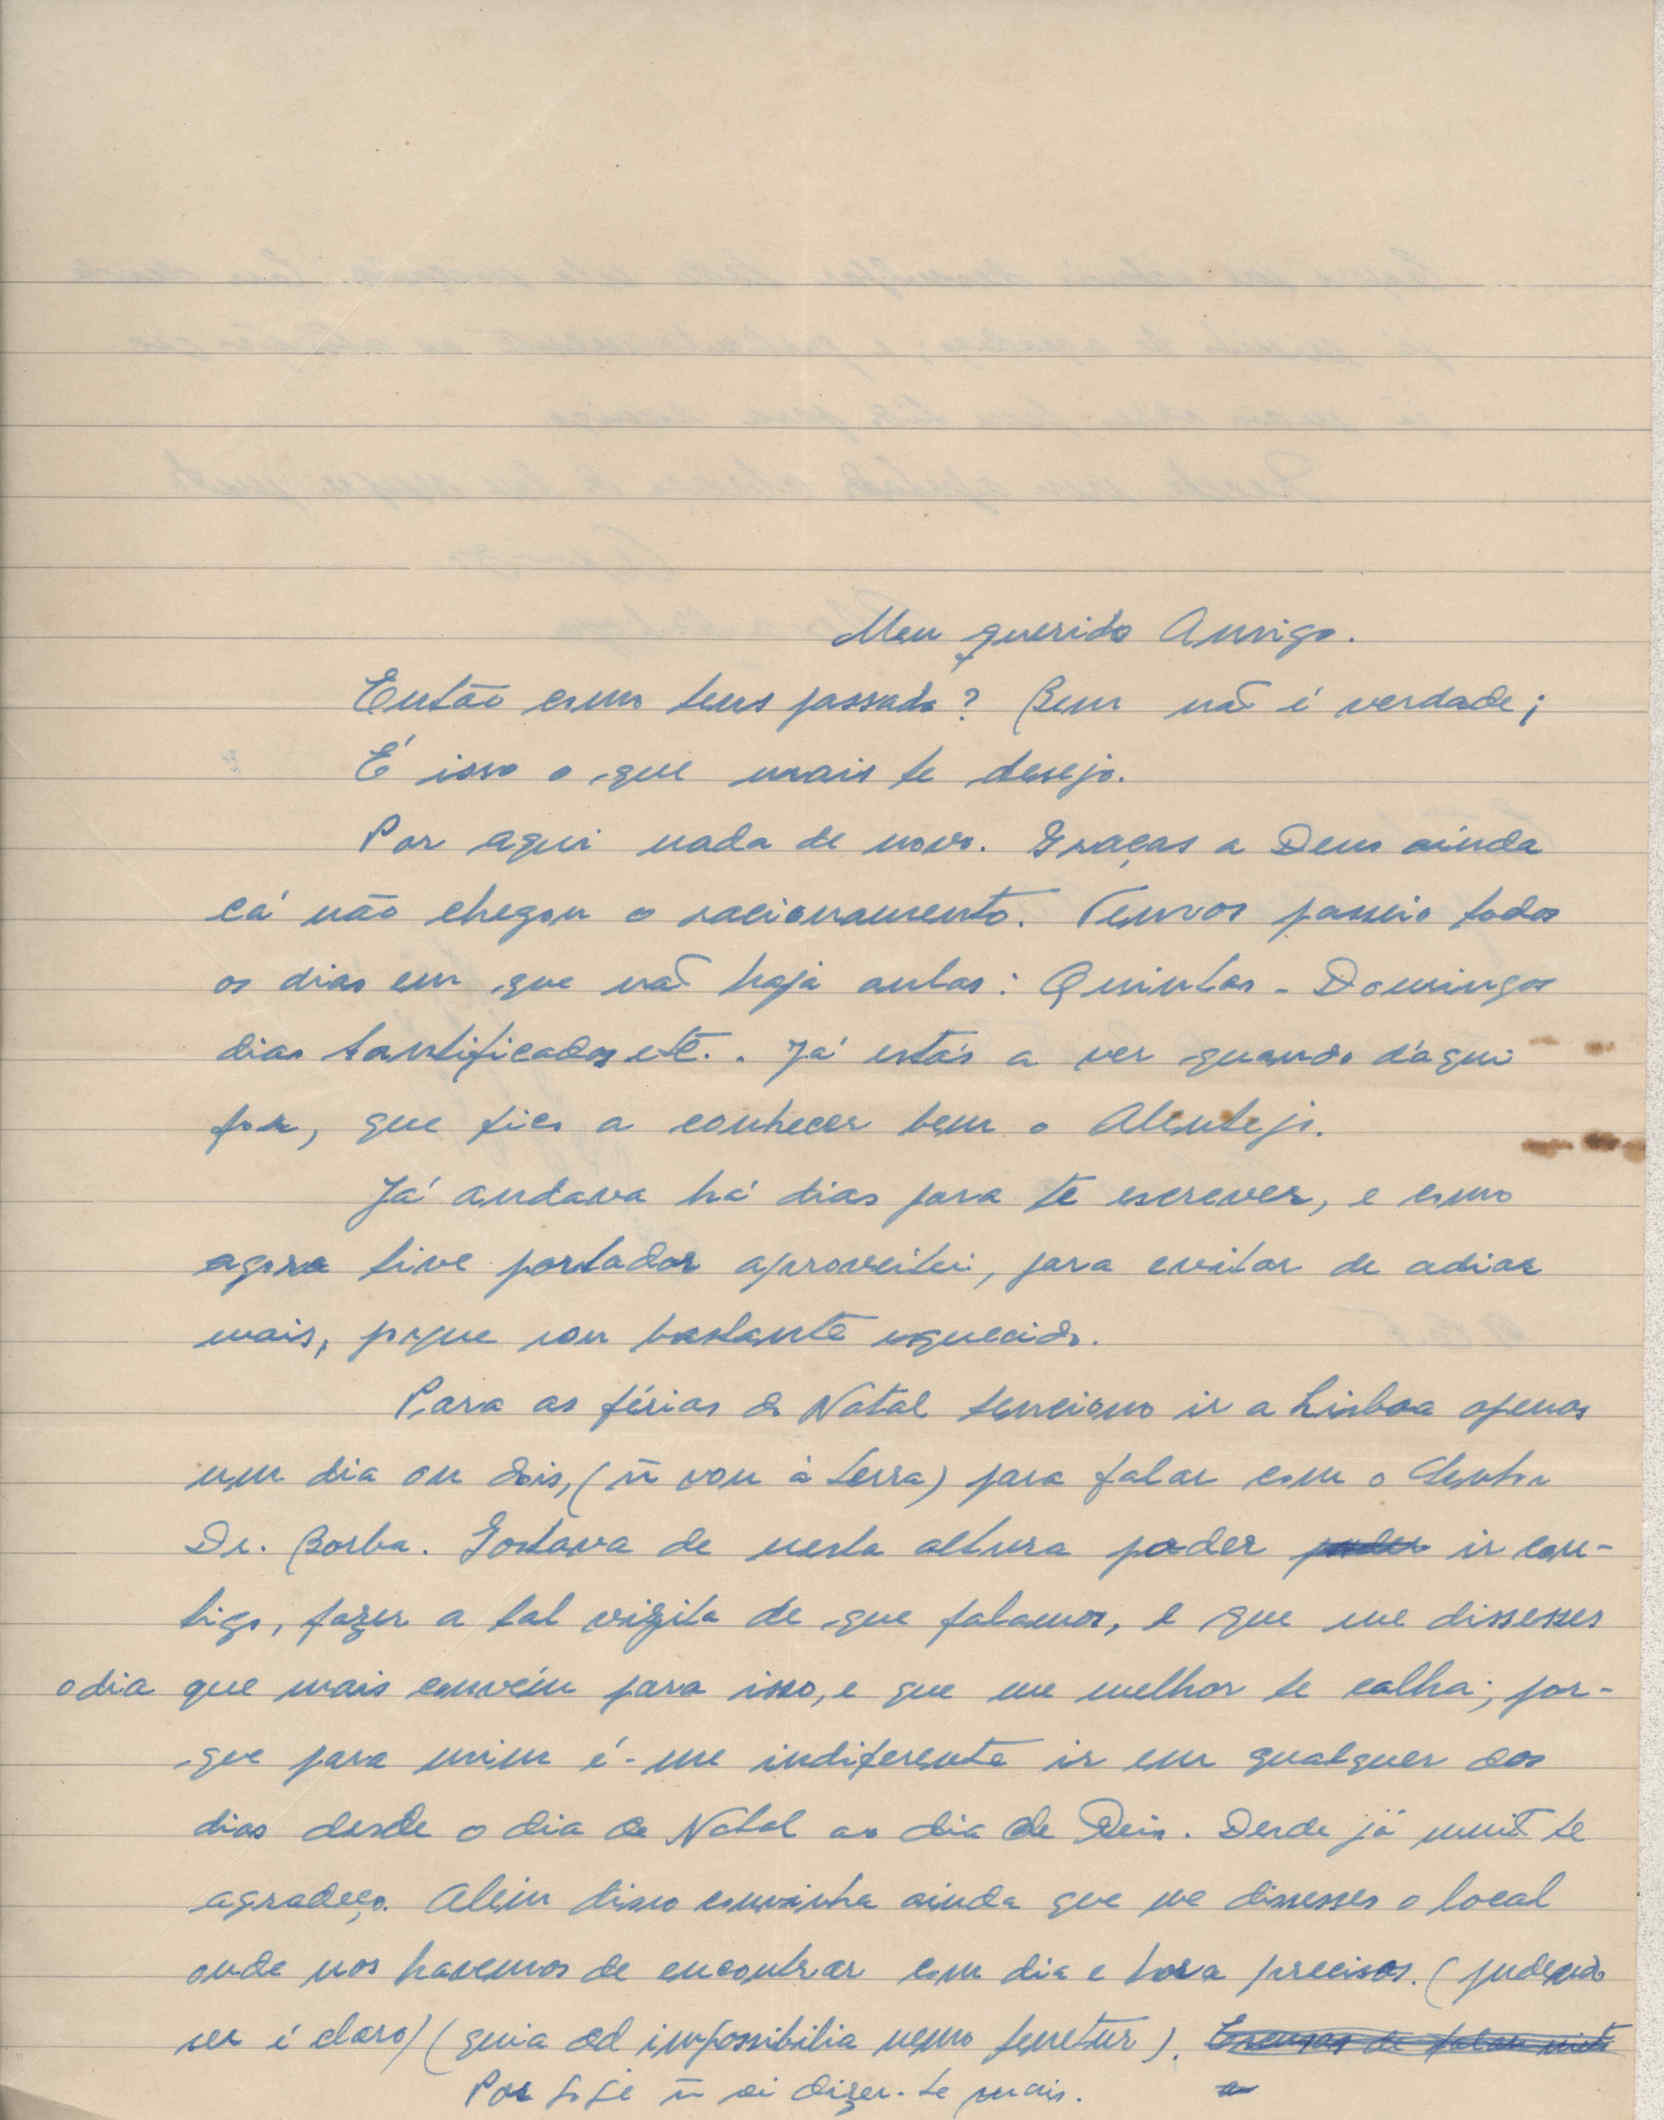 Meu querido Amigo.
Então como tens passado? Bem não é verdade;
É isso o que mais te desejo.
Por aqui nada de novo. Graças a Deus ainda
cá não chegou o racionamento. Temos passeio todos
os dias em que não haja aulas: Quintas - Domingos
dias santificados etc.. Já estás a ver quando d'aqui
for, que fico a conhecer bem o Alentejo.
Já andava há dias para te escrever, e como
agora tive portador aproveitei, para evitar de adiar
mais, pque sou bastante esquecido.
Para as férias do Natal tenciono ir a Lisboa apenas
um dia ou dois, (ñ vou à terra) para falar com o Senhor
Dr. Borba. Gostava de nesta altura poder poder ir con-
tigo, fazer a tal vizita de que falamos, e que me dissesses
o dia que mais convém para isso, e que me melhor te calha; por-
que para mim é-me indiferente ir em qualquer dos
dias desde o dia de Natal ao dia de Reis. Desde já muito te
agradeço. Alem disso convinha ainda que me dissesses o local
onde nos havemos de encontrar com dia e hora precisos. (podendo
ser é claro) (quia ad impossibilia nemo tenetur). Escusas de falar nisto
a
Por hoje ñ sei dizer-te mais.